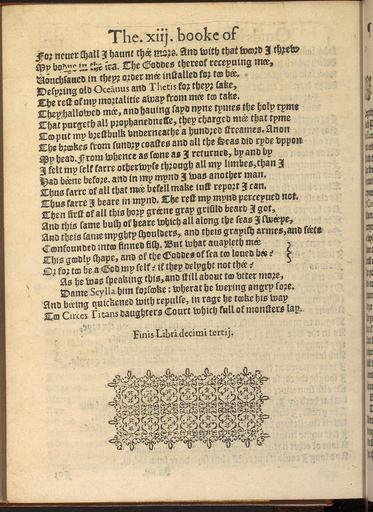 The. xiij. booke of
For neuer shall I haunt thée more. And with that word I threw
My bodye in the sea. The Goddes thereof receyuing mée,
Vouchsaued in theyr order mée installed for too bée.
Desyring old Oceanus and Thetis for theyr sake,
The rest of my mortalitie away from mée too take.
They hallowed mée, and hauing sayd nyne tymes the holy ryme
That purgeth all prophanednesse, they charged mée that tyme
Too put my brestbulk vnderneathe a hundred streames. Anon
The brookes from sundry coastes and all the Seas did ryde vppon
My head. From whence as soone as I returned, by and by
I felt my self farre otherwyse through all my limbes, than I
Had béene before. and in my mynd I was another man.
Thus farre of all that mée befell make iust report I can.
Thus farre I beare in mynd. The rest my mynd perceyued not.
Then first of all this hory gréene gray grisild beard I got,
And this same bush of heare which all along the seas I swéepe,
And theis same myghty shoulders, and theis grayish armes, and féete
Confounded intoo finned fish. But what auayleth mée
This goodly shape, and of the Goddes of sea too loued bée?
Or for too be a God my self? if they delyght not thée?
As he was speaking this, and still about too vtter more,
Dame Scylla him forsooke: wherat he wexing angry sore,
And béeing quickened with repulse, in rage he tooke his way
Too Circes Titans daughters Court which full of monsters lay.
Finis Libri decimi tertij.